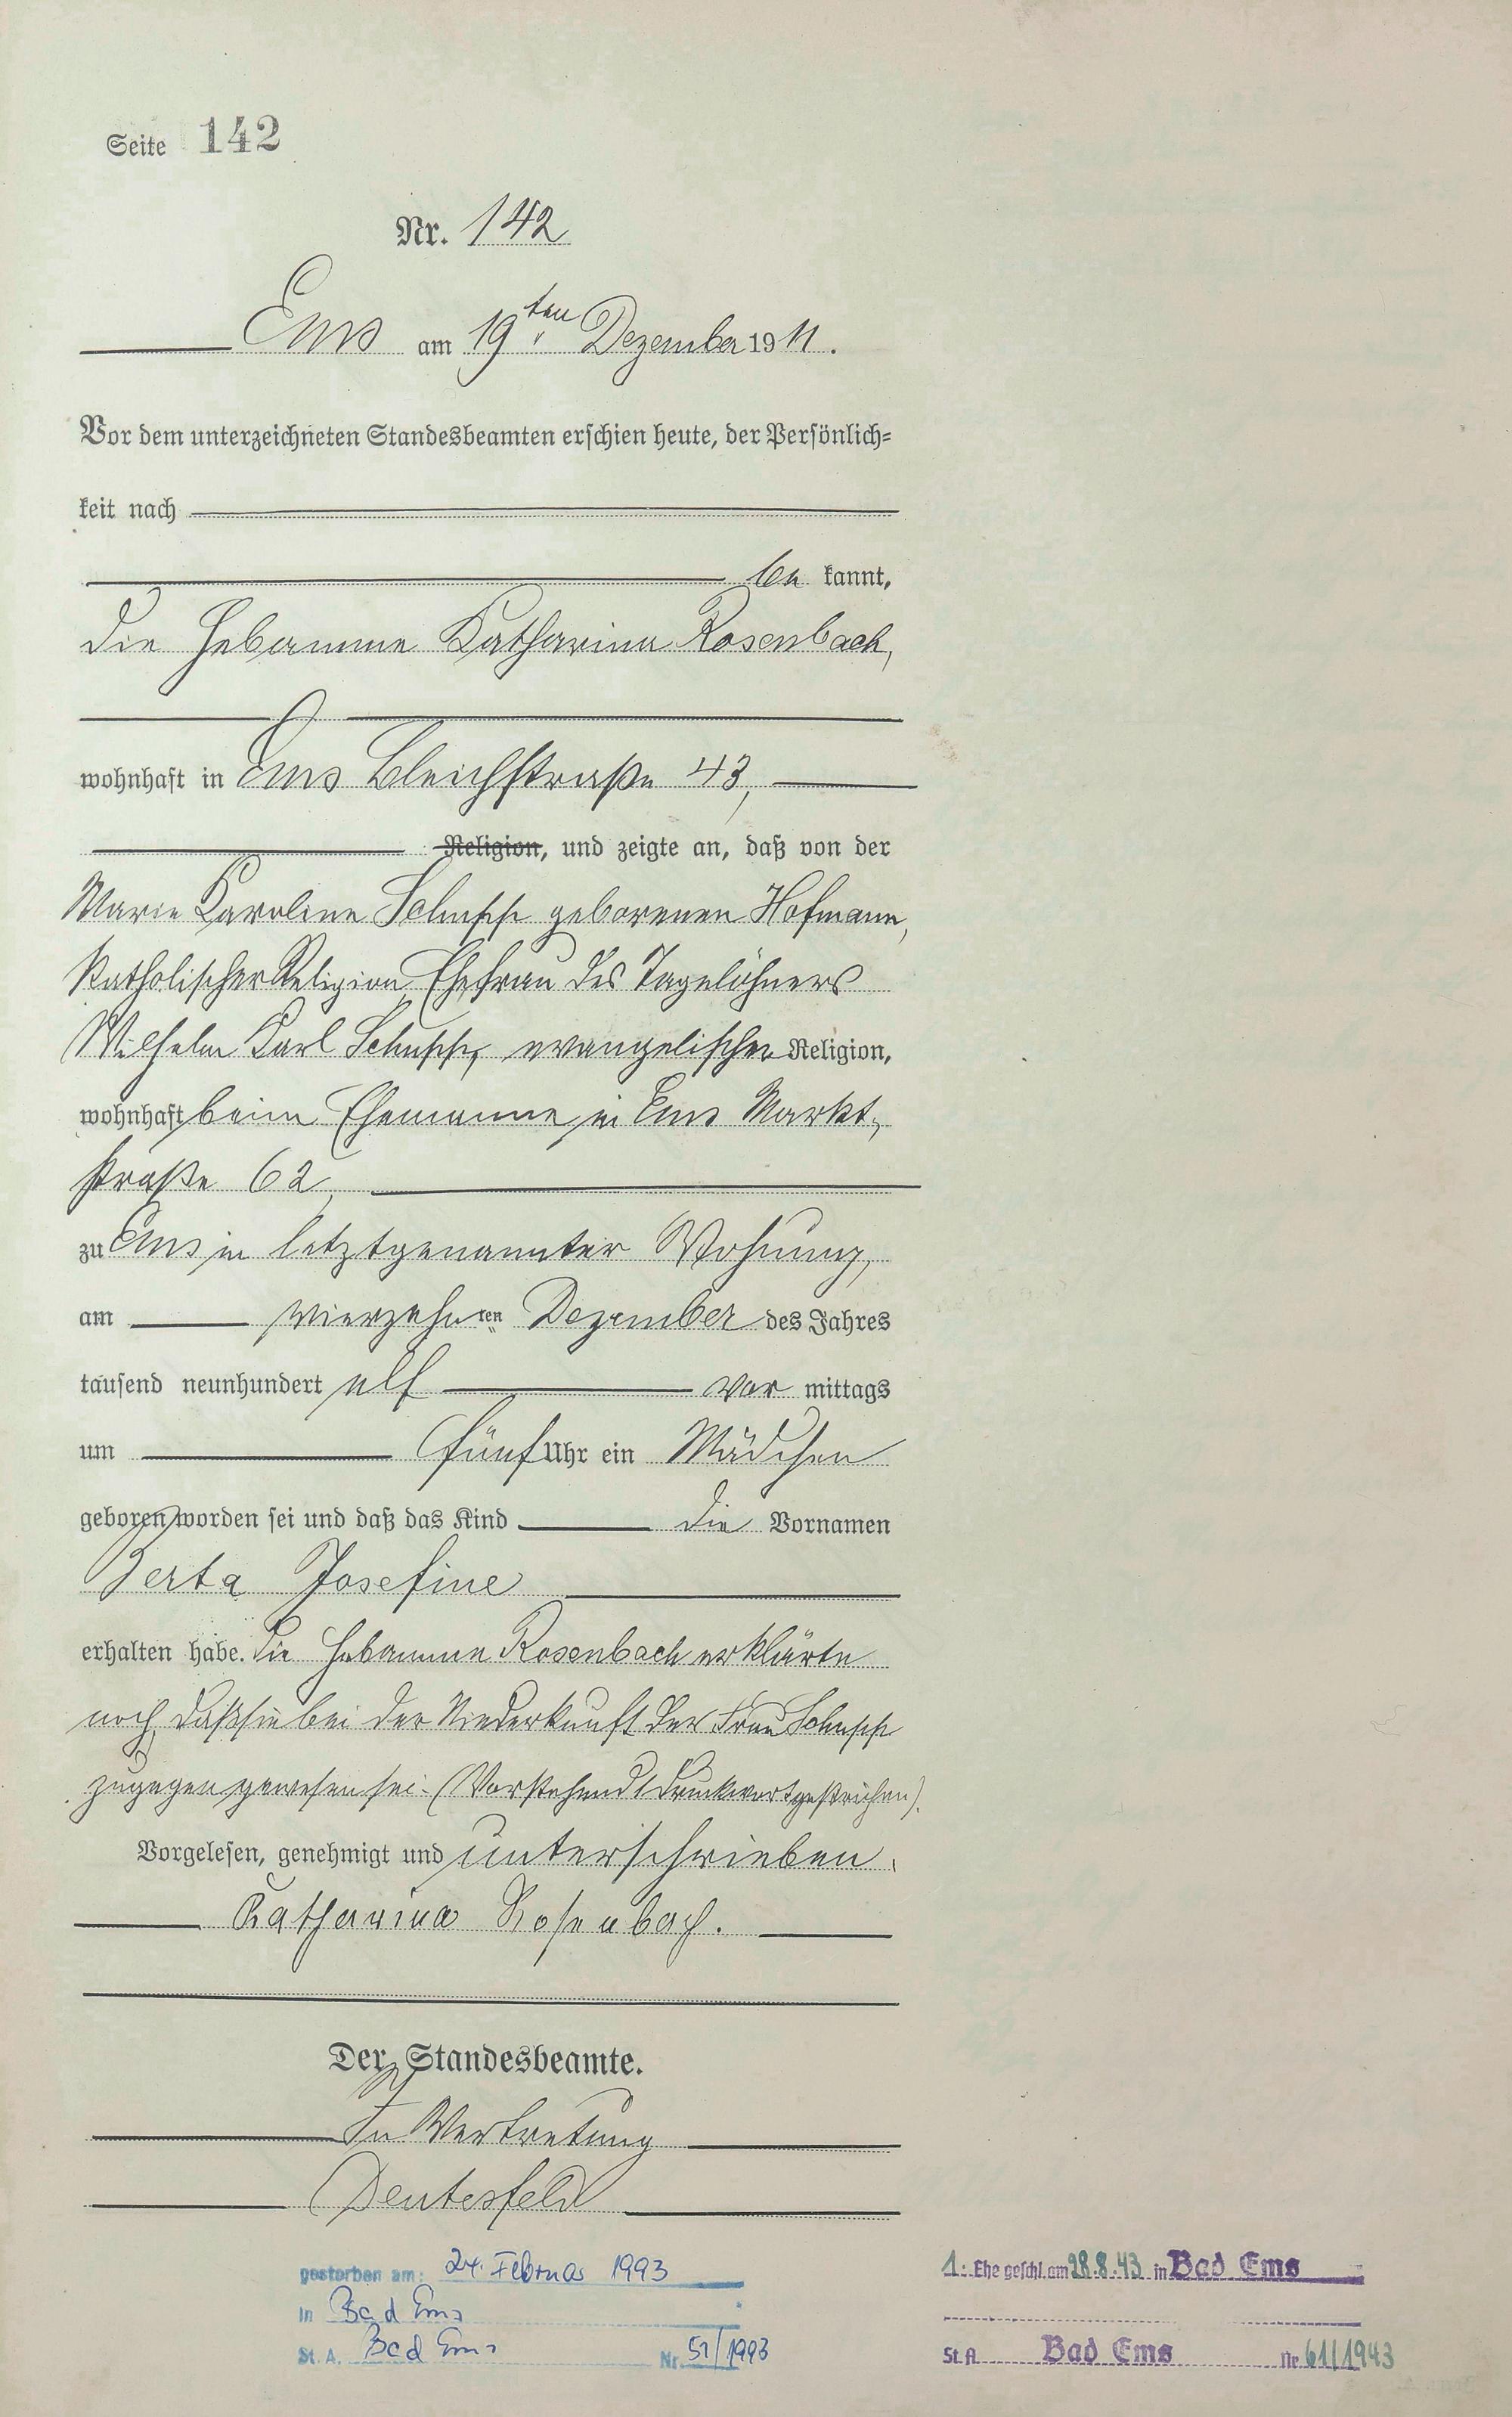 Seite 142
Nr. 142
Ems am 19ten Dezember 1911.
Vor dem unterzeichneten Standesbeamten erschien heute, der Persönlich-
keit nach
be kannt,
die Hebamme Katharina Rosenbach,
wohnhaft in Ems Bleichstraße 43,
Religion, und zeigte an, daß von der
Marie Karoline Schupp geborenen Hofmann,
katholischer Religion, Ehefrau des Tagelöhners
Wilhelm Karl Schupp, evangelischer Religion,
wohnhaft beim Ehemanne in Ems Markt-
straße 62,
zu Ems in letztgenannter Wohnung,
am vierzehnten Dezember des Jahres
tausend neunhundert elf vor mittags
um fünf Uhr ein Mädchen
geboren worden sei und daß das Kind die Vornamen
Berta Josefine
erhalten habe. Die Hebamme Rosenbach erklärte
noch, daß sie bei der Niederkunft der Frau Schupp
zugegen gewesen sei. (Vorstehend 1 Druckwort gestrichen).
Vorgelesen, genehmigt und unterschrieben.
Katharina Rosenbach.
Der Standesbeamte.
In Vertretung
gestorben am: 24. Februar 1993
in Bad Ems
St. A. Bad Ems Nr. 51/1993
1. Ehe geschl. am 28.8.43 in Bad Ems
St. A. Bad Ems Nr. 61/1943